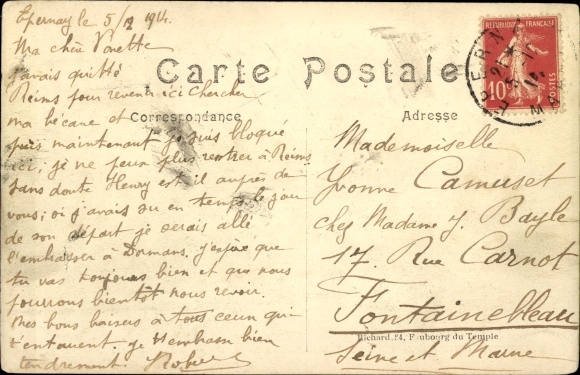 Epernay le 5/12 1914.
Ma chère Vonette
j'avais quitté
Reims pour revenir ici chercher
ma bécane et
puis maintenant je suis bloqué
ici, je ne peux plus rentrer à Reims
sans doute Henry est il auprès de
vous; si j'avais su en temps le jour
de son départ je serais allé
l'embrasser à Dormans. j'espère que
tu vas toujours bien et que nous
pourrons bientôt nous revoir.
Mes bons baisers à tous ceux qui
t'entourent. je t'embrasse bien
tendrement. Robert
Carte Postale
Correspondance
Adresse
Mademoiselle
Yvonne Camuset
chez Madame J. Bayle
17. Rue Carnot
Fontainebleau
Richard, 84, Faubourg du Temple
Seine et Marne
REPUBLIQUE FRANÇAISE
10
POSTES
EPERNAY
MARNE